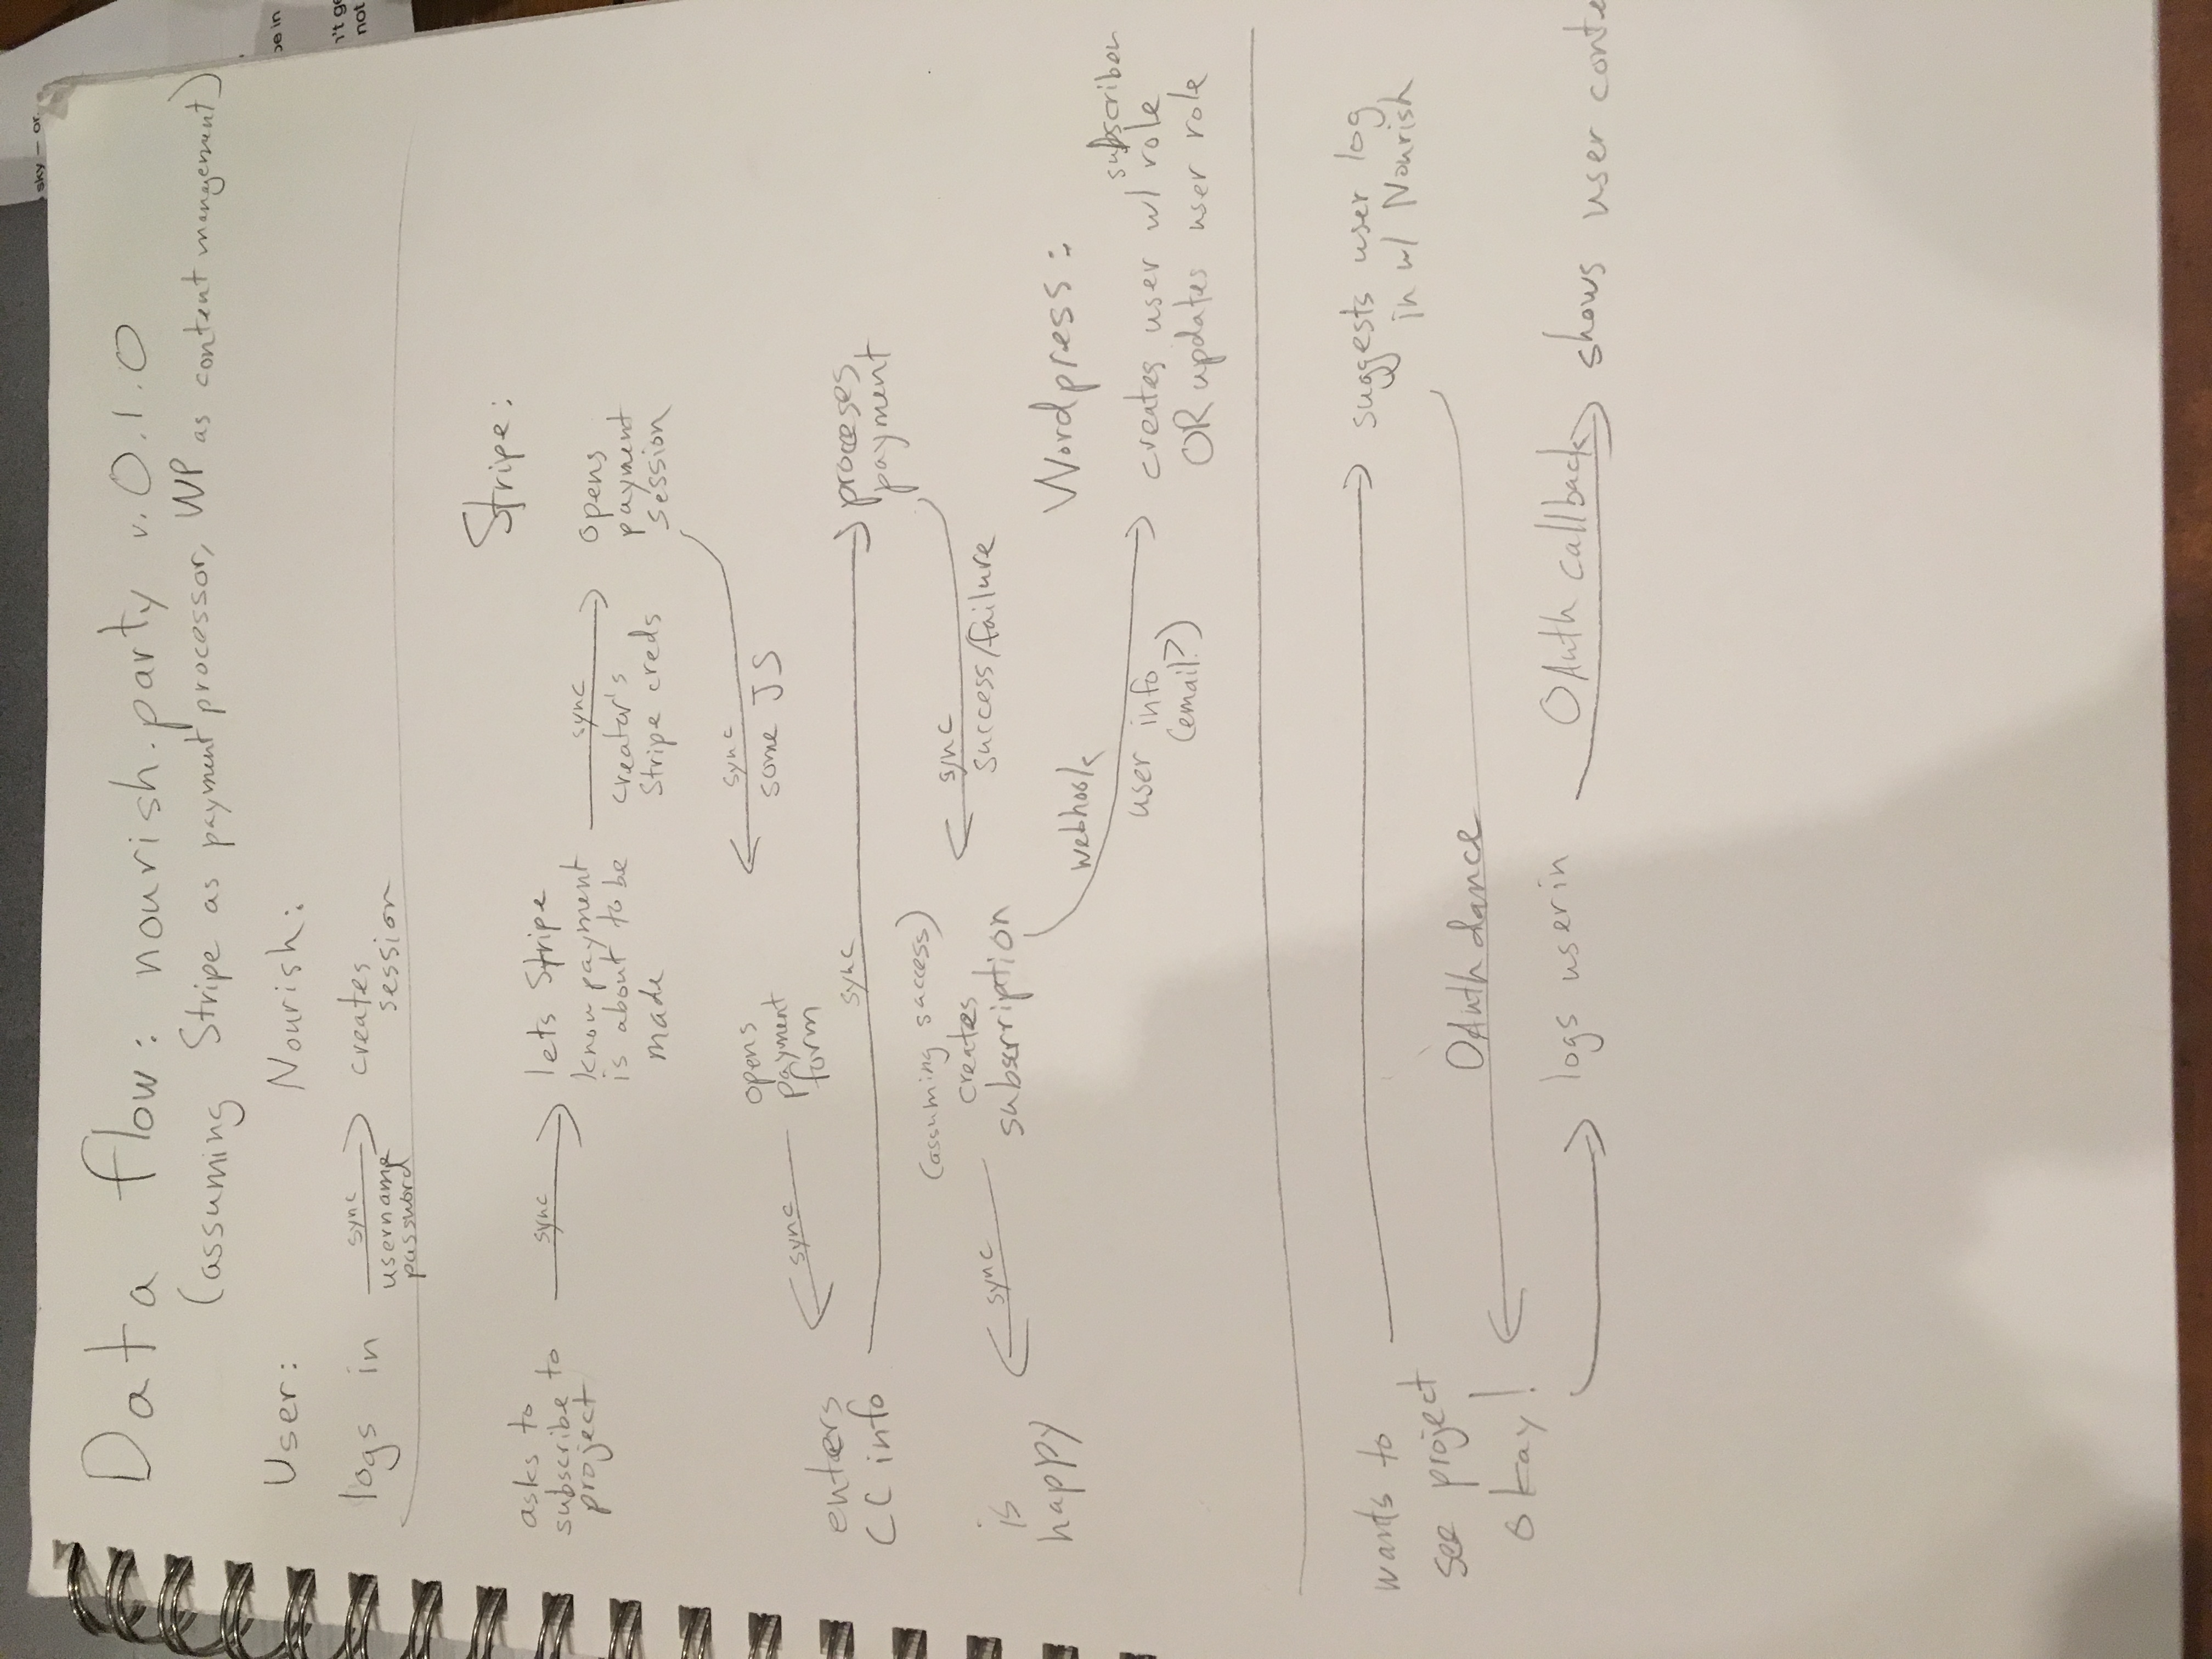 sky — or
Data flow: nourish.party v.0.1.0
(assuming Stripe as payment processor, WP as content management)
User:
Nourish:
be in
logs in
sync
username
password
creates
session
n't ge
not
Stripe:
asks to
subscribe to
project
sync
lets Stripe
know payment
is about to be
made
sync
creator's
Stripe creds
opens
payment
session
sync
some JS
opens
payment
form
sync
enters
CC info
sync
proceses
payment
sync
success/failure
(assuming success)
creates
subscription
sync
is
happy
webhook
user info
(email?)
Wordpress:
subscriber
creates user w/ role
OR updates user role
wants to
see project
suggests user log
in w/ Nourish
OAuth dance
okay!
logs user in
OAuth callback
shows user conte